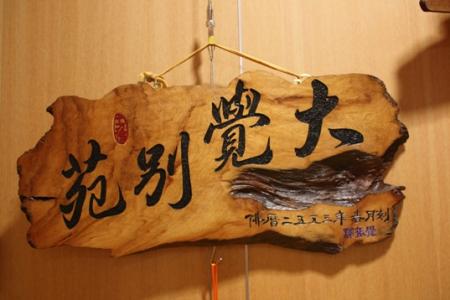 大覺別苑
佛曆二五五三年吉月刻